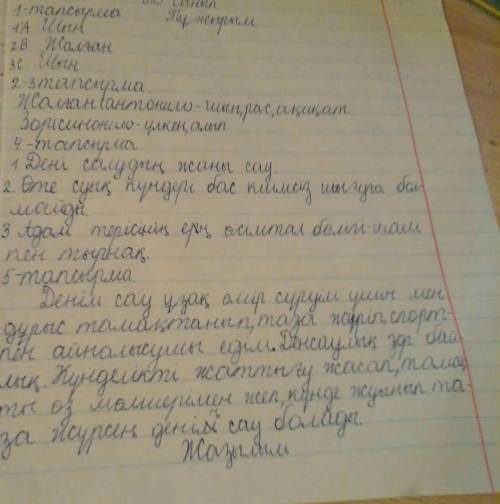 1-тапсырма
Тұжырым
1А Шын
2В Жалған
3С Шын
2-3тапсырма
Жалған(антонило-шын,рас,ақиқат
Зор(синонило-үлкен,алып
4-тапсырма
1. Дені саудың жаны сау.
2. Өте суық күндері бас киімсіз шығуға бол-
майды.
3 Адам терісінің ең өсімтал бөлігі-шаш
пен тырнақ.
5-тапсырма
Денім сау ұзақ өмір сүруім үшін мен
дұрыс тамақтанып,таза жүріп,спорт-
пен айналысушы едім. Денсаулық зор бай-
лық. Күнделікті жаттығу жасап,тамақ
ты өз мөлшерімен жеп,күнде жуынып та-
за жүрсең денің сау болады.
Жазылым